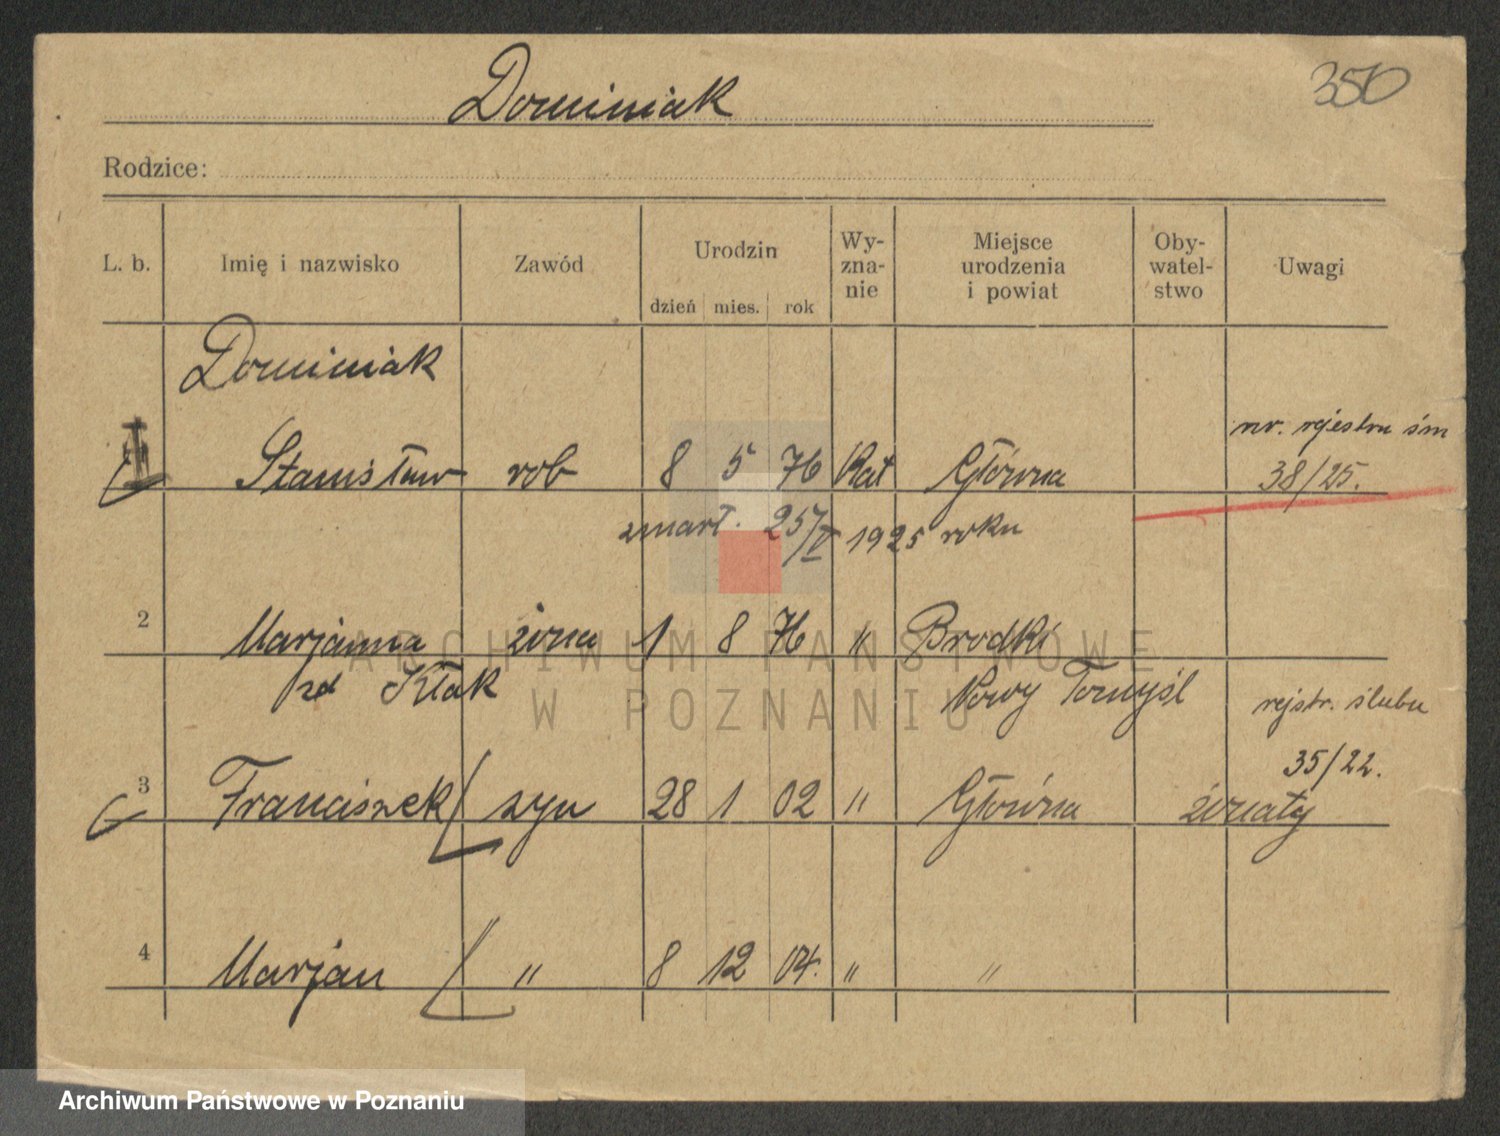 350
Dominiak
Rodzice:
L. b. Imię i nazwisko Zawód Urodzin dzień mies. rok Wy-zna-nie Miejsce urodzenia i powiat Oby-watel-stwo Uwagi
Dominiak
nr. rejestru śm
Stanisław rob 8 5 76 Kat Główna 38/25.
zmarł. 25/V 1925 roku
2 Marjanna żona 1 8 76 " Brodki
zd Kłak Nowy Tomyśl rejstr. ślubu
35/22.
3 Franciszek syn 28 1 02 " Główna żonaty
4 Marjan " 8 12 04. " "
ARCHIWUM PAŃSTWOWE
W POZNANIU
Archiwum Państwowe w Poznaniu